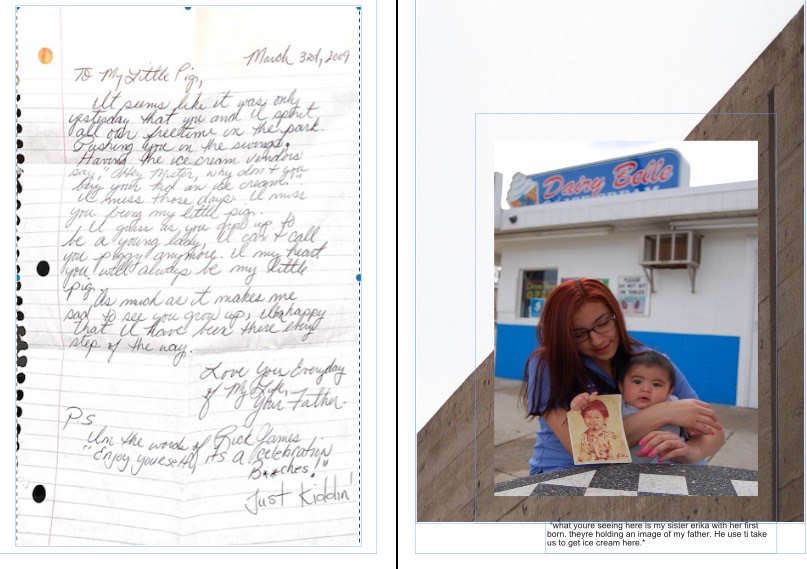 March 3rd, 2009
To My Little Pig,
It seems like it was only
yesterday that you and I spent
all our freetime in the park.
Pushing you in the swings.
Having the ice cream vendors
say, "Hey Mister, why don't you
buy your kid an ice cream."
I miss those days. I miss
you being my little pig.
I guess as you grow up to
be a young lady, I can't call
you piggy anymore. In my heart
you will always be my little
pig.
As much as it makes me
sad to see you grow up, I'm happy
that I have been there every
step of the way.
Love You Everyday
of My Life,
Your Father
P.S.
In the words of Rick James
"Enjoy yourself, its a celebration
B**ches!"
Just Kiddin'
Dairy Belle
ICE CREAM
PLEASE
DO NOT SIT
ON TABLES
"what youre seeing here is my sister erika with her first
born. theyre holding an image of my father. He use ti take
us to get ice cream here."